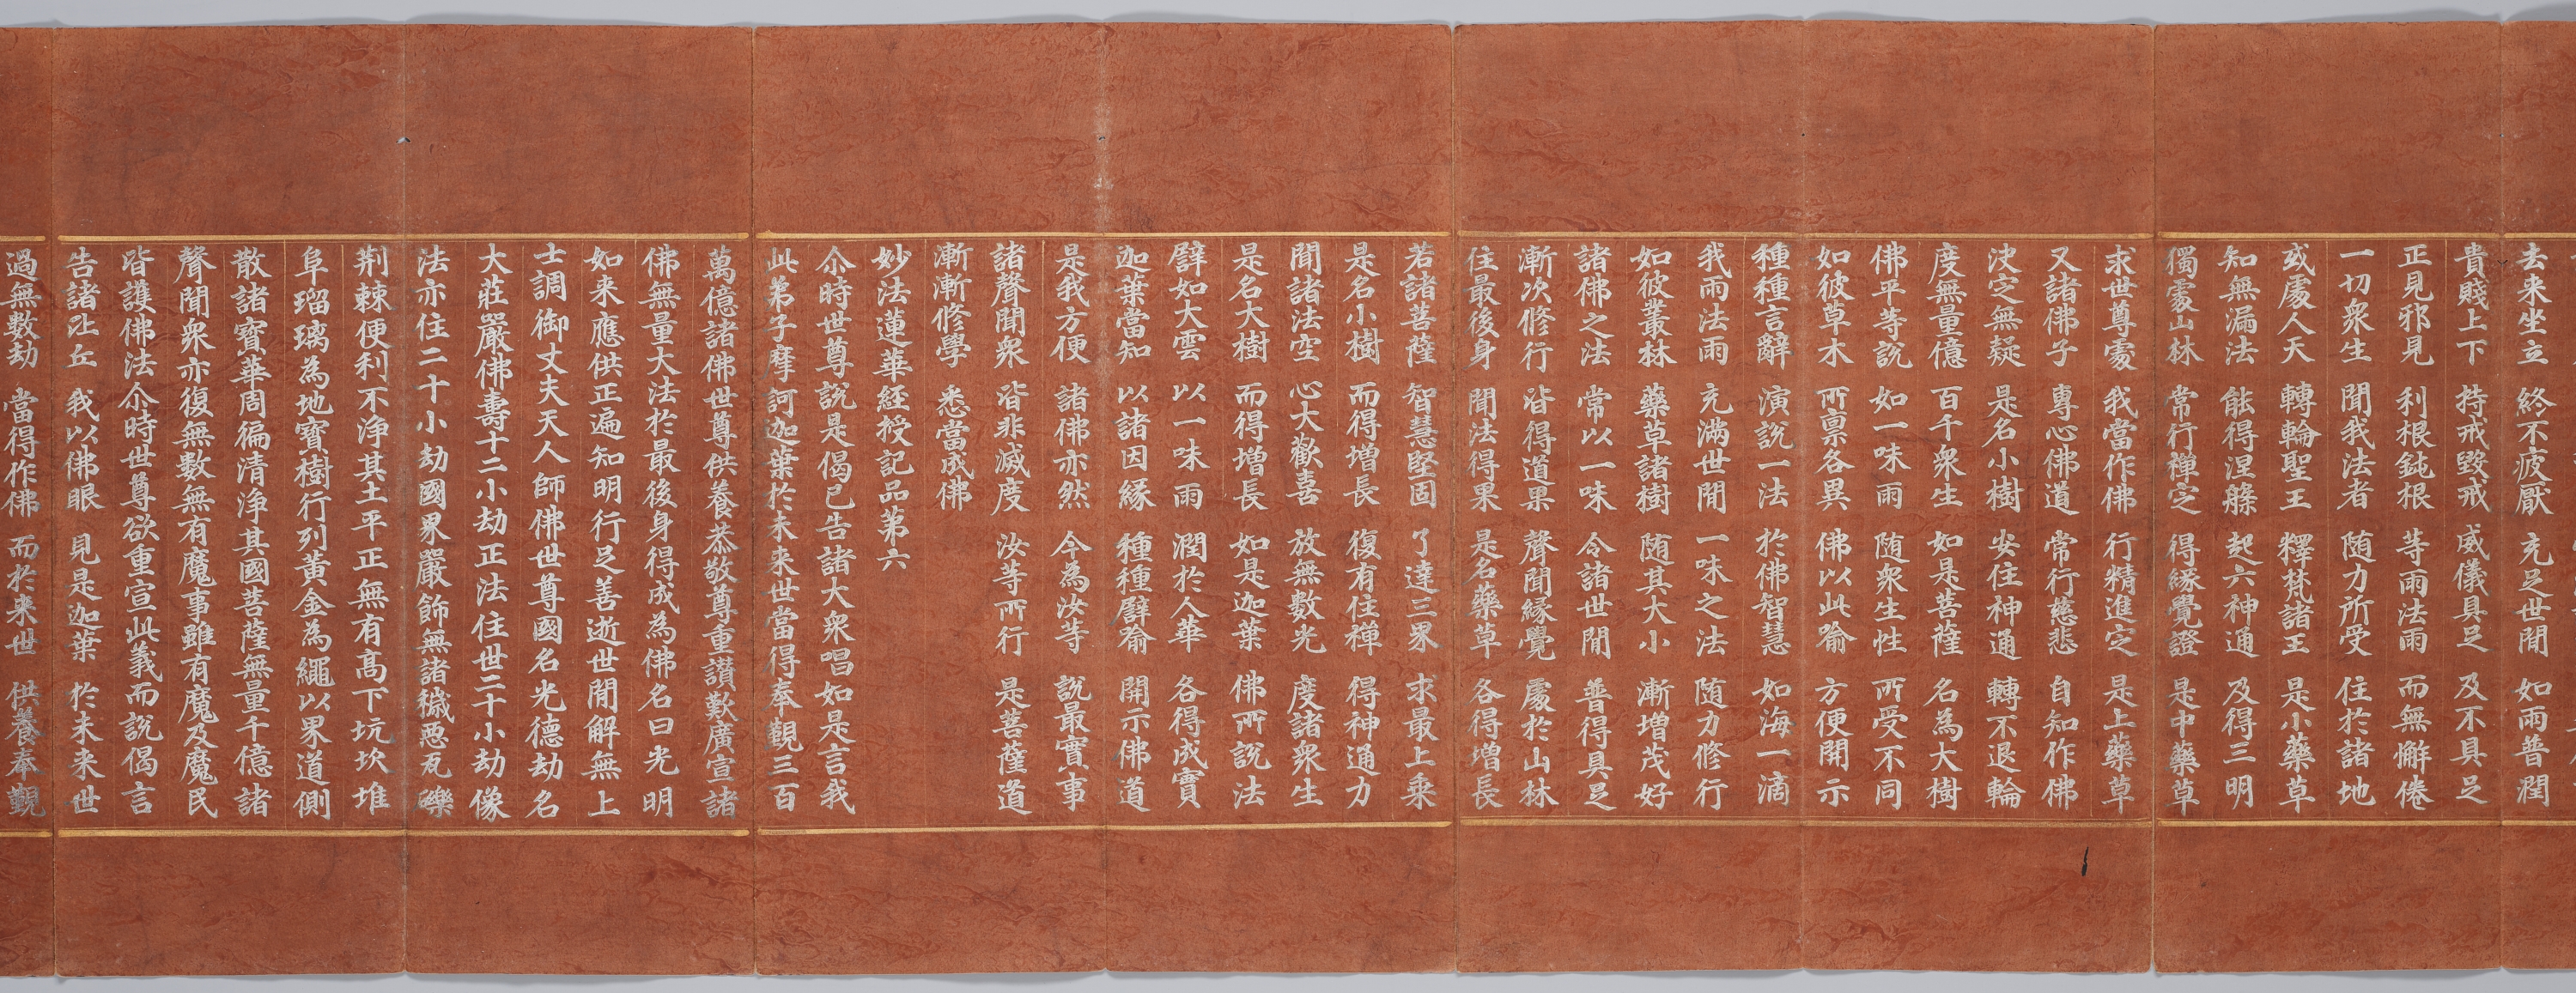 去来坐立 終不疲厭 充足世間 如雨普潤
貴賤上下 持戒毀戒 威儀具足 及不具足
正見邪見 利根鈍根 等雨法雨 而無懈倦
一切衆生 聞我法者 随力所受 住於諸地
或處人天 轉輪聖王 釋梵諸王 是小藥草
知無漏法 能得涅槃 起六神通 及得三明
獨處山林 常行禅定 得縁覺證 是中藥草
求世尊處 我當作佛 行精進定 是上藥草
又諸佛子 專心佛道 常行慈悲 自知作佛
决定無疑 是名小樹 安住神通 轉不退輪
度無量億 百千衆生 如是菩薩 名為大樹
佛平等說 如一味雨 随衆生性 所受不同
如彼草木 所禀各異 佛以此喻 方便開示
種種言辭 演說一法 於佛智慧 如海一滴
我雨法雨 充滿世間 一味之法 随力修行
如彼叢林 藥草諸樹 随其大小 漸増茂好
諸佛之法 常以一味 令諸世間 普得具足
漸次修行 皆得道果 聲聞縁覺 處於山林
住最後身 聞法得果 是名藥草 各得増長
若諸菩薩 智慧堅固 了達三界 求最上乘
是名小樹 而得増長 復有住禅 得神通力
聞諸法空 心大歡喜 放無數光 度諸衆生
是名大樹 而得増長 如是迦葉 佛所說法
譬如大雲 以一味雨 潤於人華 各得成實
迦葉當知 以諸因縁 種種譬喻 開示佛道
是我方便 諸佛亦然 今為汝等 說最實事
諸聲聞衆 皆非滅度 汝等所行 是菩薩道
漸漸修學 悉當成佛
妙法蓮華経授記品第六
尒時世尊說是偈已告諸大衆唱如是言我
此弟子摩訶迦葉於未来世當得奉觐三百
萬億諸佛世尊供養恭敬尊重讃歎廣宣諸
佛無量大法於最後身得成為佛名曰光明
如来應供正遍知明行足善逝世間解無上
士調御丈夫天人師佛世尊國名光德劫名
大莊嚴佛壽十二小劫正法住世二十小劫像
法亦住二十小劫國界嚴飾無諸穢惡瓦礫
荆棘便利不浄其土平正無有髙下坑坎堆
阜瑠璃為地寶樹行列黄金為繩以界道側
散諸寳華周徧清浄其國菩薩無量千億諸
聲聞衆亦復無數無有魔事雖有魔及魔民
皆護佛法尒時世尊欲重宣此義而說偈言
告諸比丘 我以佛眼 見是迦葉 於未来世
過無數劫 當得作佛 而於来世 供養奉觐